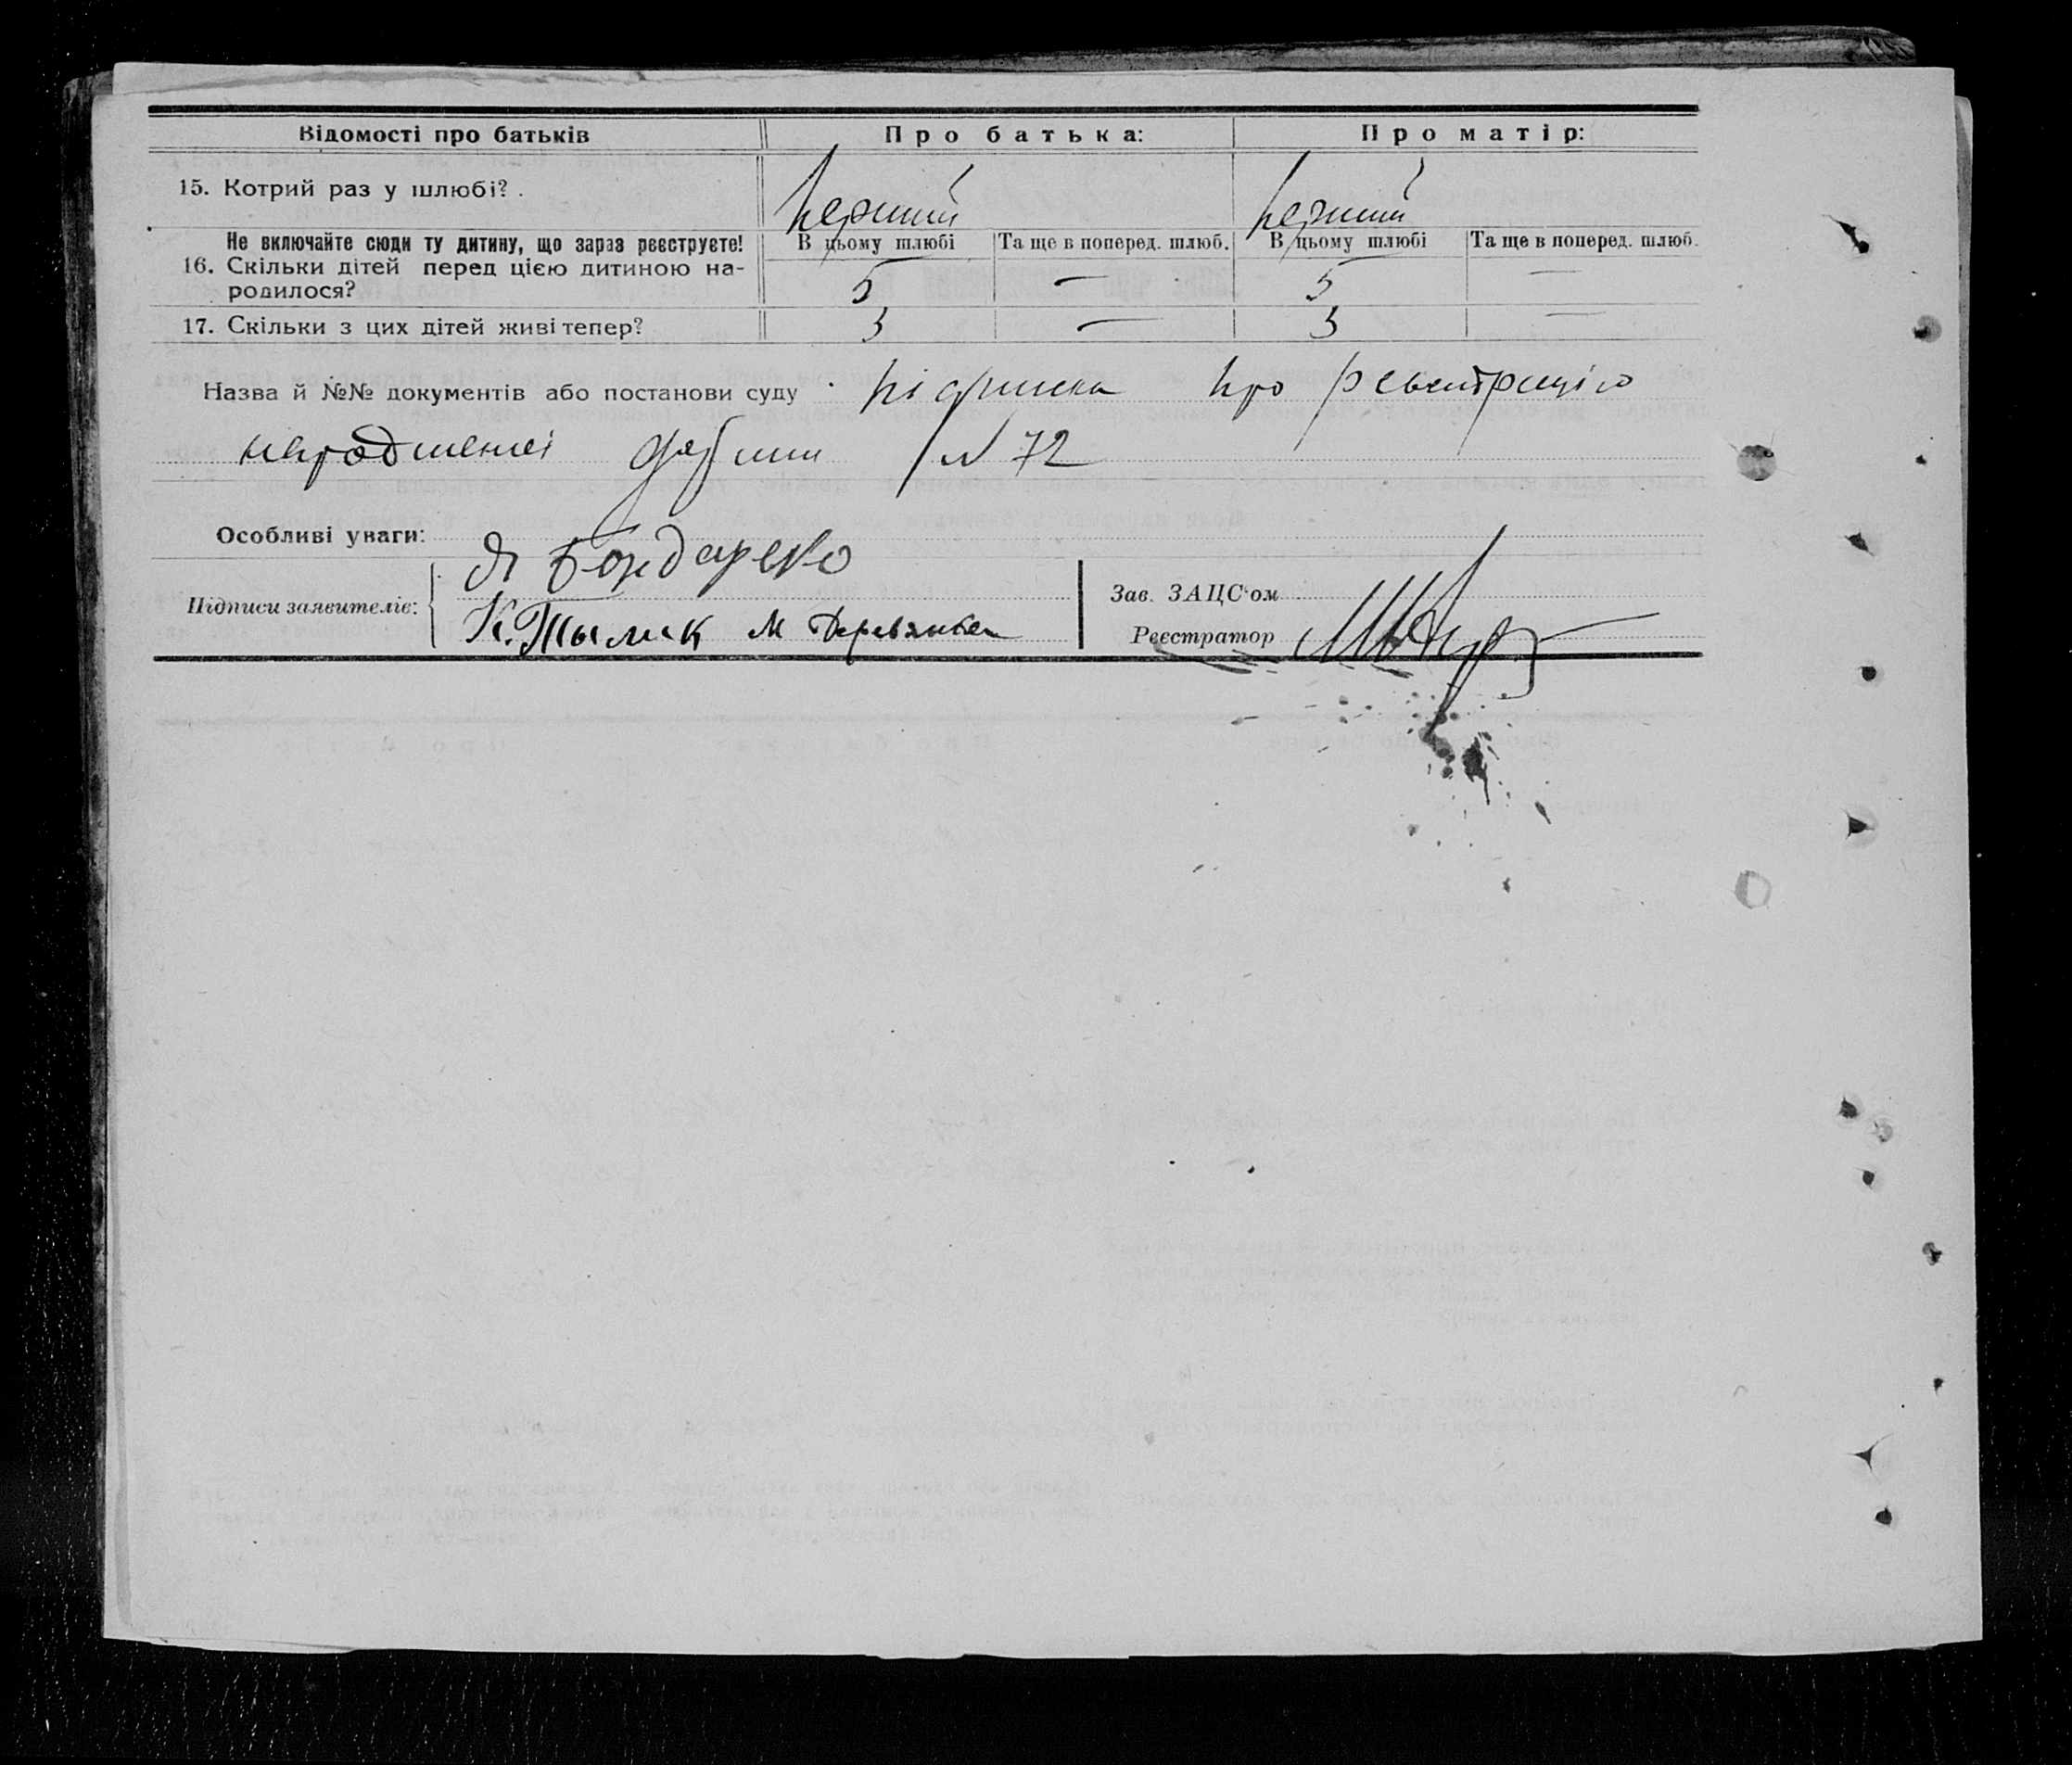 Відомості про батьків Про батька: Про матір:
15. Котрий раз у шлюбі? перший перший
Не включайте сюди ту дитину, що зараз реєструєте! В цьому шлюбі Та ще в поперед. шлюб. В цьому шлюбі Та ще в поперед. шлюб.
16. Скільки дітей перед цією дитиною на-
родилося? 5 — 5 —
17. Скільки з цих дітей живі тепер? 3 — 3 —
Назва й №№ документів або постанови суду підписка про
N 72
Особливі уваги:
Підписи заявителів: Я Бондаренко
К. Тылик М Деревянко
Зав. ЗАЦС'ом
Реєстратор